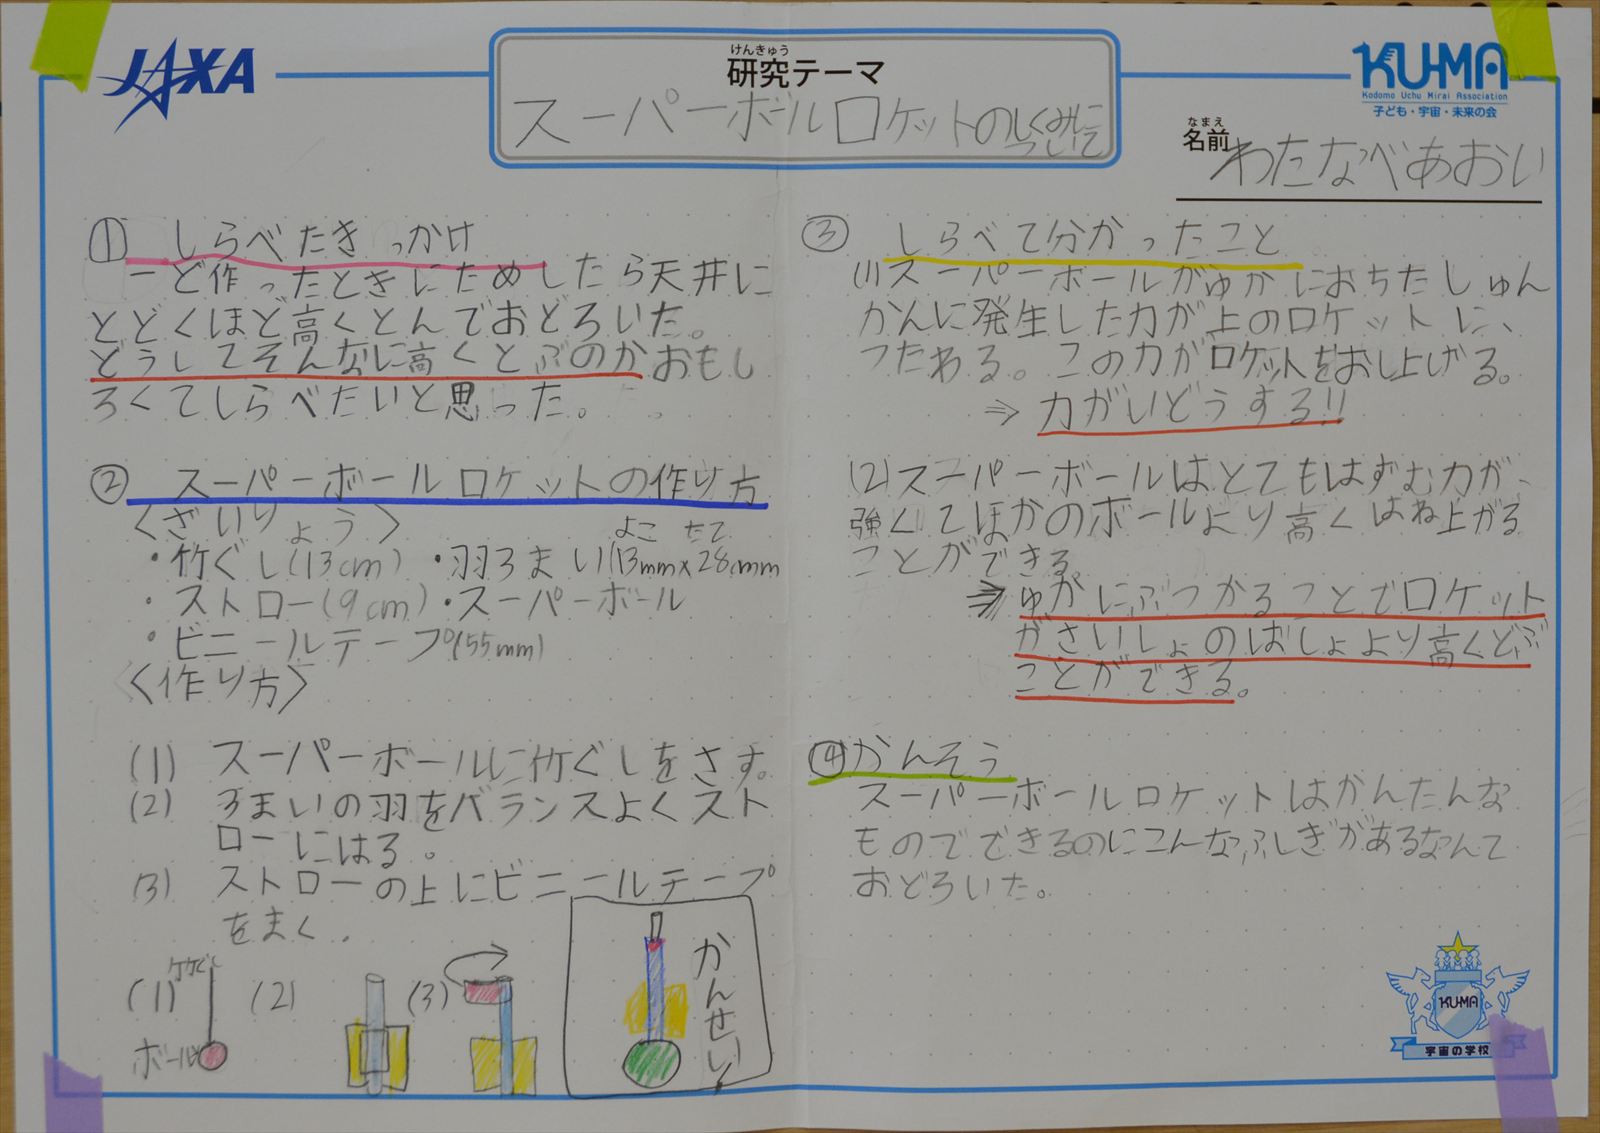 JAXA
けんきゅう
研究テーマ
スーパーボールロケットのしくみについて
KU-MA
Kodomo Uchu Mirai Association
子ども・宇宙・未来の会
なまえ
名前 わたなべあおい
① しらべたきっかけ
一ど作ったときにためしたら天井に
とどくほど高くとんでおどろいた。
どうしてそんなに高くとぶのかおもし
ろくてしらべたいと思った。
② スーパーボールロケットの作り方
〈ざいりょう〉
よこ たて
・竹ぐし(13cm) ・羽ろまい(13mm×28mm
・ストロー(9cm)・スーパーボール
・ビニールテープ(55mm)
〈作り方〉
(1) スーパーボールに竹ぐしをさす。
(2) ろまいの羽をバランスよくスト
ローにはる。
(3) ストローの上にビニールテープ
をまく.
(1) 竹ぐし
ボール
(2)
(3)
かんせい!
③ しらべて分かったこと
(1)スーパーボールがゆかにおちたしゅん
かんに発生した力が上のロケットに、
つたわる。この力がロケットをおし上げる。
⇒ 力がいどうする!!
(2)スーパーボールはとてもはずむ力が、
強くてほかのボールより高くはね上がる
ことができる。
⇒ ゆかにぶつかることでロケット
がさいしょのばしょより高くとぶ
ことができる。
④かんそう
スーパーボールロケットはかんたんな
ものでできるのにこんなふしぎがあるなんて
おどろいた。
KU-MA
宇宙の学校